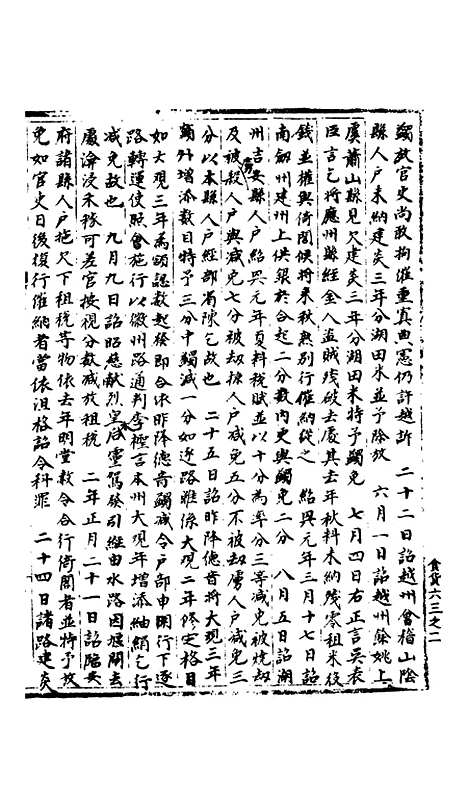 蠲放官吏尚敢拘催重寘典憲仍許越訴　二十二日詔越州會稽山陰
縣人戶未納建炎三年分湖田米並予除放　六月一日詔越州餘姚上
虞蕭山縣見欠建炎三年分湖田米特予蠲免　七月四日右正言吳表
臣言乞將應州縣經金人盜賊殘破去處其去年秋料未納殘零租米役
錢並權與倚閣候將來秋熟別行催納從之　紹興元年三月十七日詔
南劍州建州上供銀於合起二分數內更與蠲免二分　八月五日詔湖
州吉安縣人戶紹興元年夏料稅賦並以十分為率分三等減免被燒劫
及被殺人戶與減免七分被劫掠人戶減免五分不被劫虜人戶減免三
分以本縣人戶經部省陳乞故也　二十五日詔昨降德音將大觀三年
額外增添數目特予三分中蠲減一分如逐路雖係大觀二年修定格目
如大觀三年為頭認數起發即合依昨降德音蠲減令戶部申明行下逐
路轉運使照會施行以徽州路通判李裡言本州大觀年增添紬絹乞行
減免故也　九月九日詔昭慈獻烈皇后靈駕發引經由水路因堰開去
處渰浸禾稼可差官按視分數減放租稅　二年正月二十一日詔臨安
府諸縣人戶拖欠下租稅等物依去年明堂赦令合行倚閣者並特予放
免如官吏日後復行催納者當依沮格詔令科罪　二十四日諸路建炎
食貨六三之二